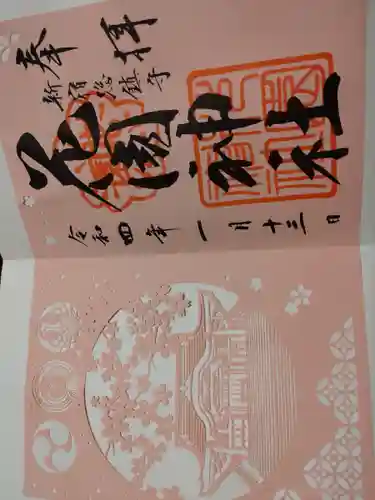 奉拝
新宿総鎮守
花園神社
令和四年一月十三日